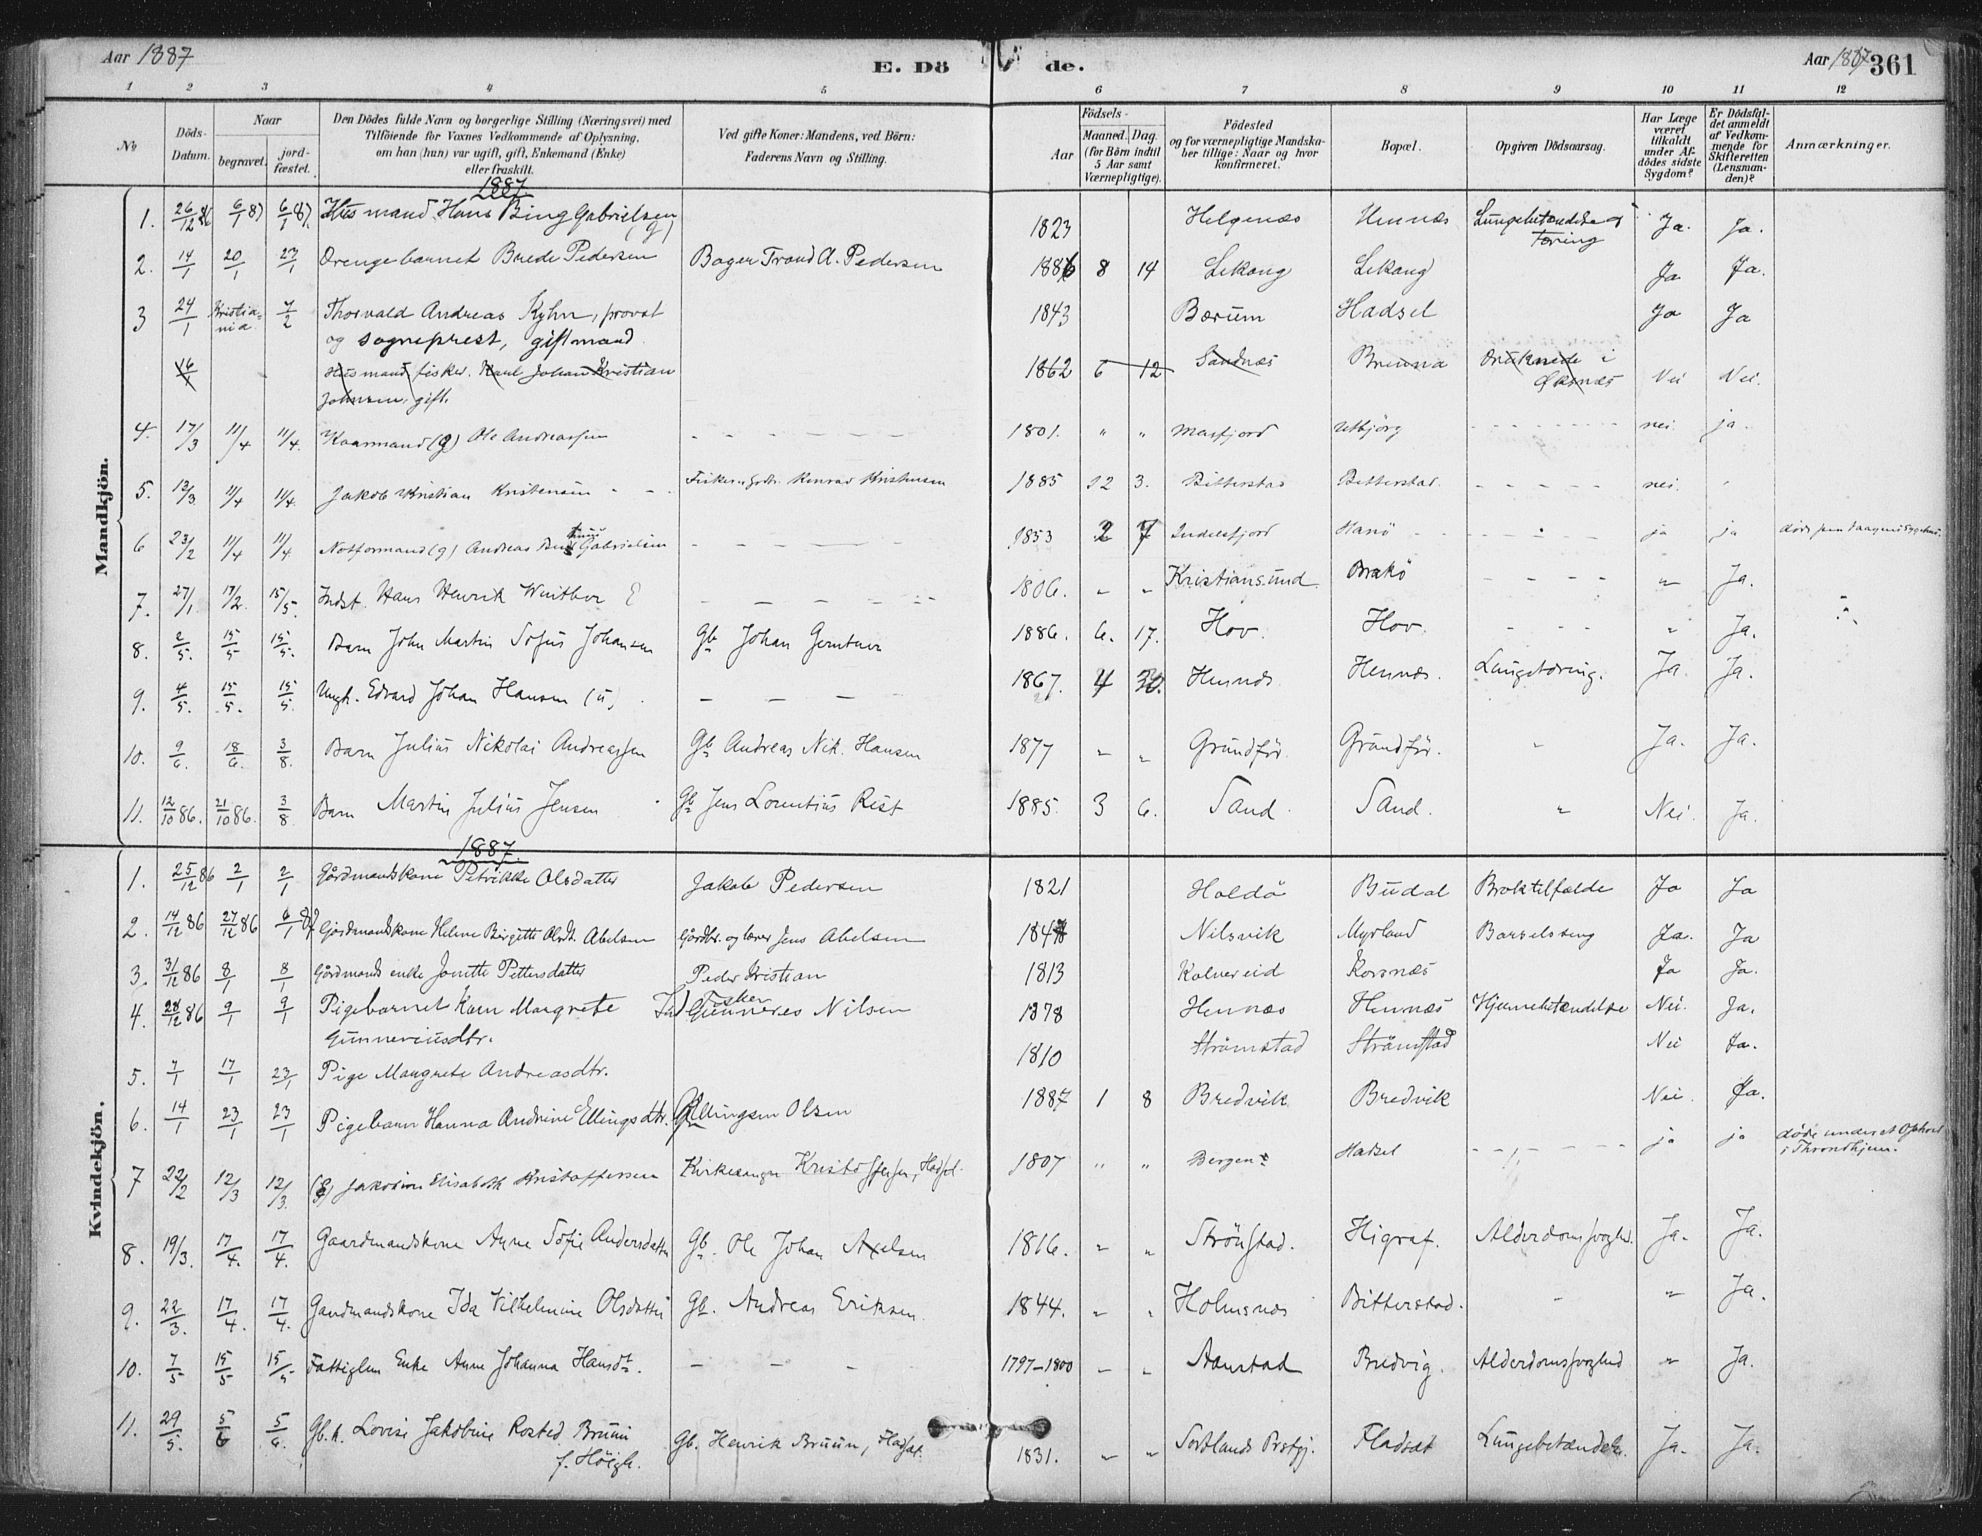 Aar 1887
E. Döde.
Aar 1887 361
1 2 3 4 5 6 7 8 9 10 11 12
No
Döds-Datum.
Naar
begravet.
jord-fæstet.
Den Dödes fulde Navn og borgerlige Stilling (Næringsvei) med
Tilföiende for Voxnes Vedkommende af Oplysning,
om han (hun) var ugift, gift, Enkemand (Enke)
eller fraskilt.
Ved gifte Koner: Mandens, ved Börn:
Faderens Navn og Stilling.
Födsels-
Aar
Maaned. Dag.
(for Börn indtil
5 Aar samt
Værnepligtige).
Födested
og for værnepligtige Mandska-
ber tillige: Naar og hvor
konfirmeret.
Bopæl.
Opgiven Dödsaarsag.
Har Læge
været
tilkaldt
under Af-
dödes sidste
Sygdom?
Er Dödsfal-
det anmeldt
af Vedkom-
mende for
Skifteretten
(Lensman-
den)?
Anmærkninger.
Mandkjön.
1887
1. 26/12 86 6/1 87 6/1 87 Husmand Hans Bing Gabrielsen (g) 1823 Helgenæs Hennæs Lungebetændelse og Tæring Ja. Ja.
2. 14/1 20/1 23/1 Drengebarnet Brede Pedersen Bager Trond A. Pedersen 1886 8 14 Lekang Lekang Ja Ja.
3 24/1 Kristiania 7/2 Thorvald Andreas Kyhn, provst
og sogneprest, giftmand 1843 Bærum Hadsel Ja Ja
16/1 Husmand, fisker. Karl Johan Kristian
Johnsen, gift. 1862 6 12 Sandnæs Brenna Druknede i Øksnæs Nei Nei.
4. 17/3 11/4 11/4. Kaarmand (g) Ole Andreassen - - - 1801. " " Masfjord Utbjörg - - - nei. ja.
5. 12/3 11/4 11/4. Jakob Kristian Kristensen Konrad Kristensen 1885 12 3. Bitterstad Bitterstad. - - - nei.
6 23/2 11/4 11/4 Notformand (g) Andreas Gabrielsen - - - 1853 2 7 Hanö - - - ja ja
7. 27/1. 17/2. 15/5. Indst. Hans Henrik Winther E - - - 1806. " " Kristiansund Brakö - - - " Ja.
8. 2/5. 15/5 15/5. Barn John Martin Sofus Johansen Gb Johan Gerntner 1886. 6. 17. Hov. Hov. - - - " Ja.
9. 4/5. 15/5. 15/5. Ungk. Edvard Johan Hansen (u) - - - 1867. 4 30. Hennes Hennes. Lungetæring. Ja. Ja.
10. 9/6. 18/6. 3/8. Barn Julius Nikolai Andreassen Gb Andreas Nik. Hansen 1877 " " Grundför Grundför. " Ja. Ja.
11. 12/10 86. 21/10 86. 3/8 Barn Martin Julius Jensen Gb Jens Lorentius Rist 1885. 3 6. Sand. Sand. " Nei. Ja.
Kvindekjön.
1887.
1. 25/12 86 2/1 2/1 Gårdmandskone Petrikke Olsdatter Jakob Pedersen 1821 Haldö Budal Broktilfælde Ja Ja
2. 14/12 86 27/12 86 6/1 87 Gårdmandskone Helene Birgitte Olsdt. Abelsen Gårdbr. og lærer Jens Abelsen 1847 Nilsvik Myrland Barselseng Ja. Ja
3. 31/12 86 8/1 8/1 Gårdmands enke Jonette Pettersdatter Peder Kristian 1813 Kalvereid Korsnæs Ja Ja.
4. 28/12 86 9/1 9/1 Pigebarnet Karn Margrete
Gunneriusdtr. Fisker Gunnerius Nilsen 1878 Hennæs Hennæs Hjernebetændelse Nei. Ja.
5. 7/1 17/1 23/1 Pige Margrete Andreasdtr. 1810 Strömstad Strömstad Nei Ja.
6. 14/1 23/1 23/1 Pigebarn Hanna Andrine Ellingsdtr. Ellingsen Olsen 1887 1 8 Bredvik Bredvik Nei. Ja.
7 22/2 12/3 12/3. (E) Jakobine Elisabeth Kristoffersen Kirkesanger Kristoffersen, Hadsel. 1807 " " Bergen Hadsel - - - ja ja döde under et Ophold
i Throndhjem.
8. 19/3. 17/4. 17/4. Gaardmandskone Anne Sofie Andersdatter Gb. Ole Johan Axelsen 1816. " " Strönstad. Higraf. Alderdomssvaghd. Ja. Ja.
9. 22/3. 17/4. 17/4. Gaardmandskone Ida Vilhelmine Olsdatter Gb. Andreas Eriksen 1844. " " Holmsnes Bitterstad. - " Ja.
10. 7/5 15/5 15/5 Fattiglem Enke Anne Johanna Hansdt. - - - 1797-1800 " " Aanstad Bredvig. Alderdomssvaghed " Ja.
11. 29/5. 5/6 5/6. Gb.k. Lovise Jakobine Rosted Bruun
f. Höigh. Gb. Henrik Bruun, Hadsel. 1831. " " Sortlands Prstgj. Fladsæt Lungebetændelse. Ja. Ja.